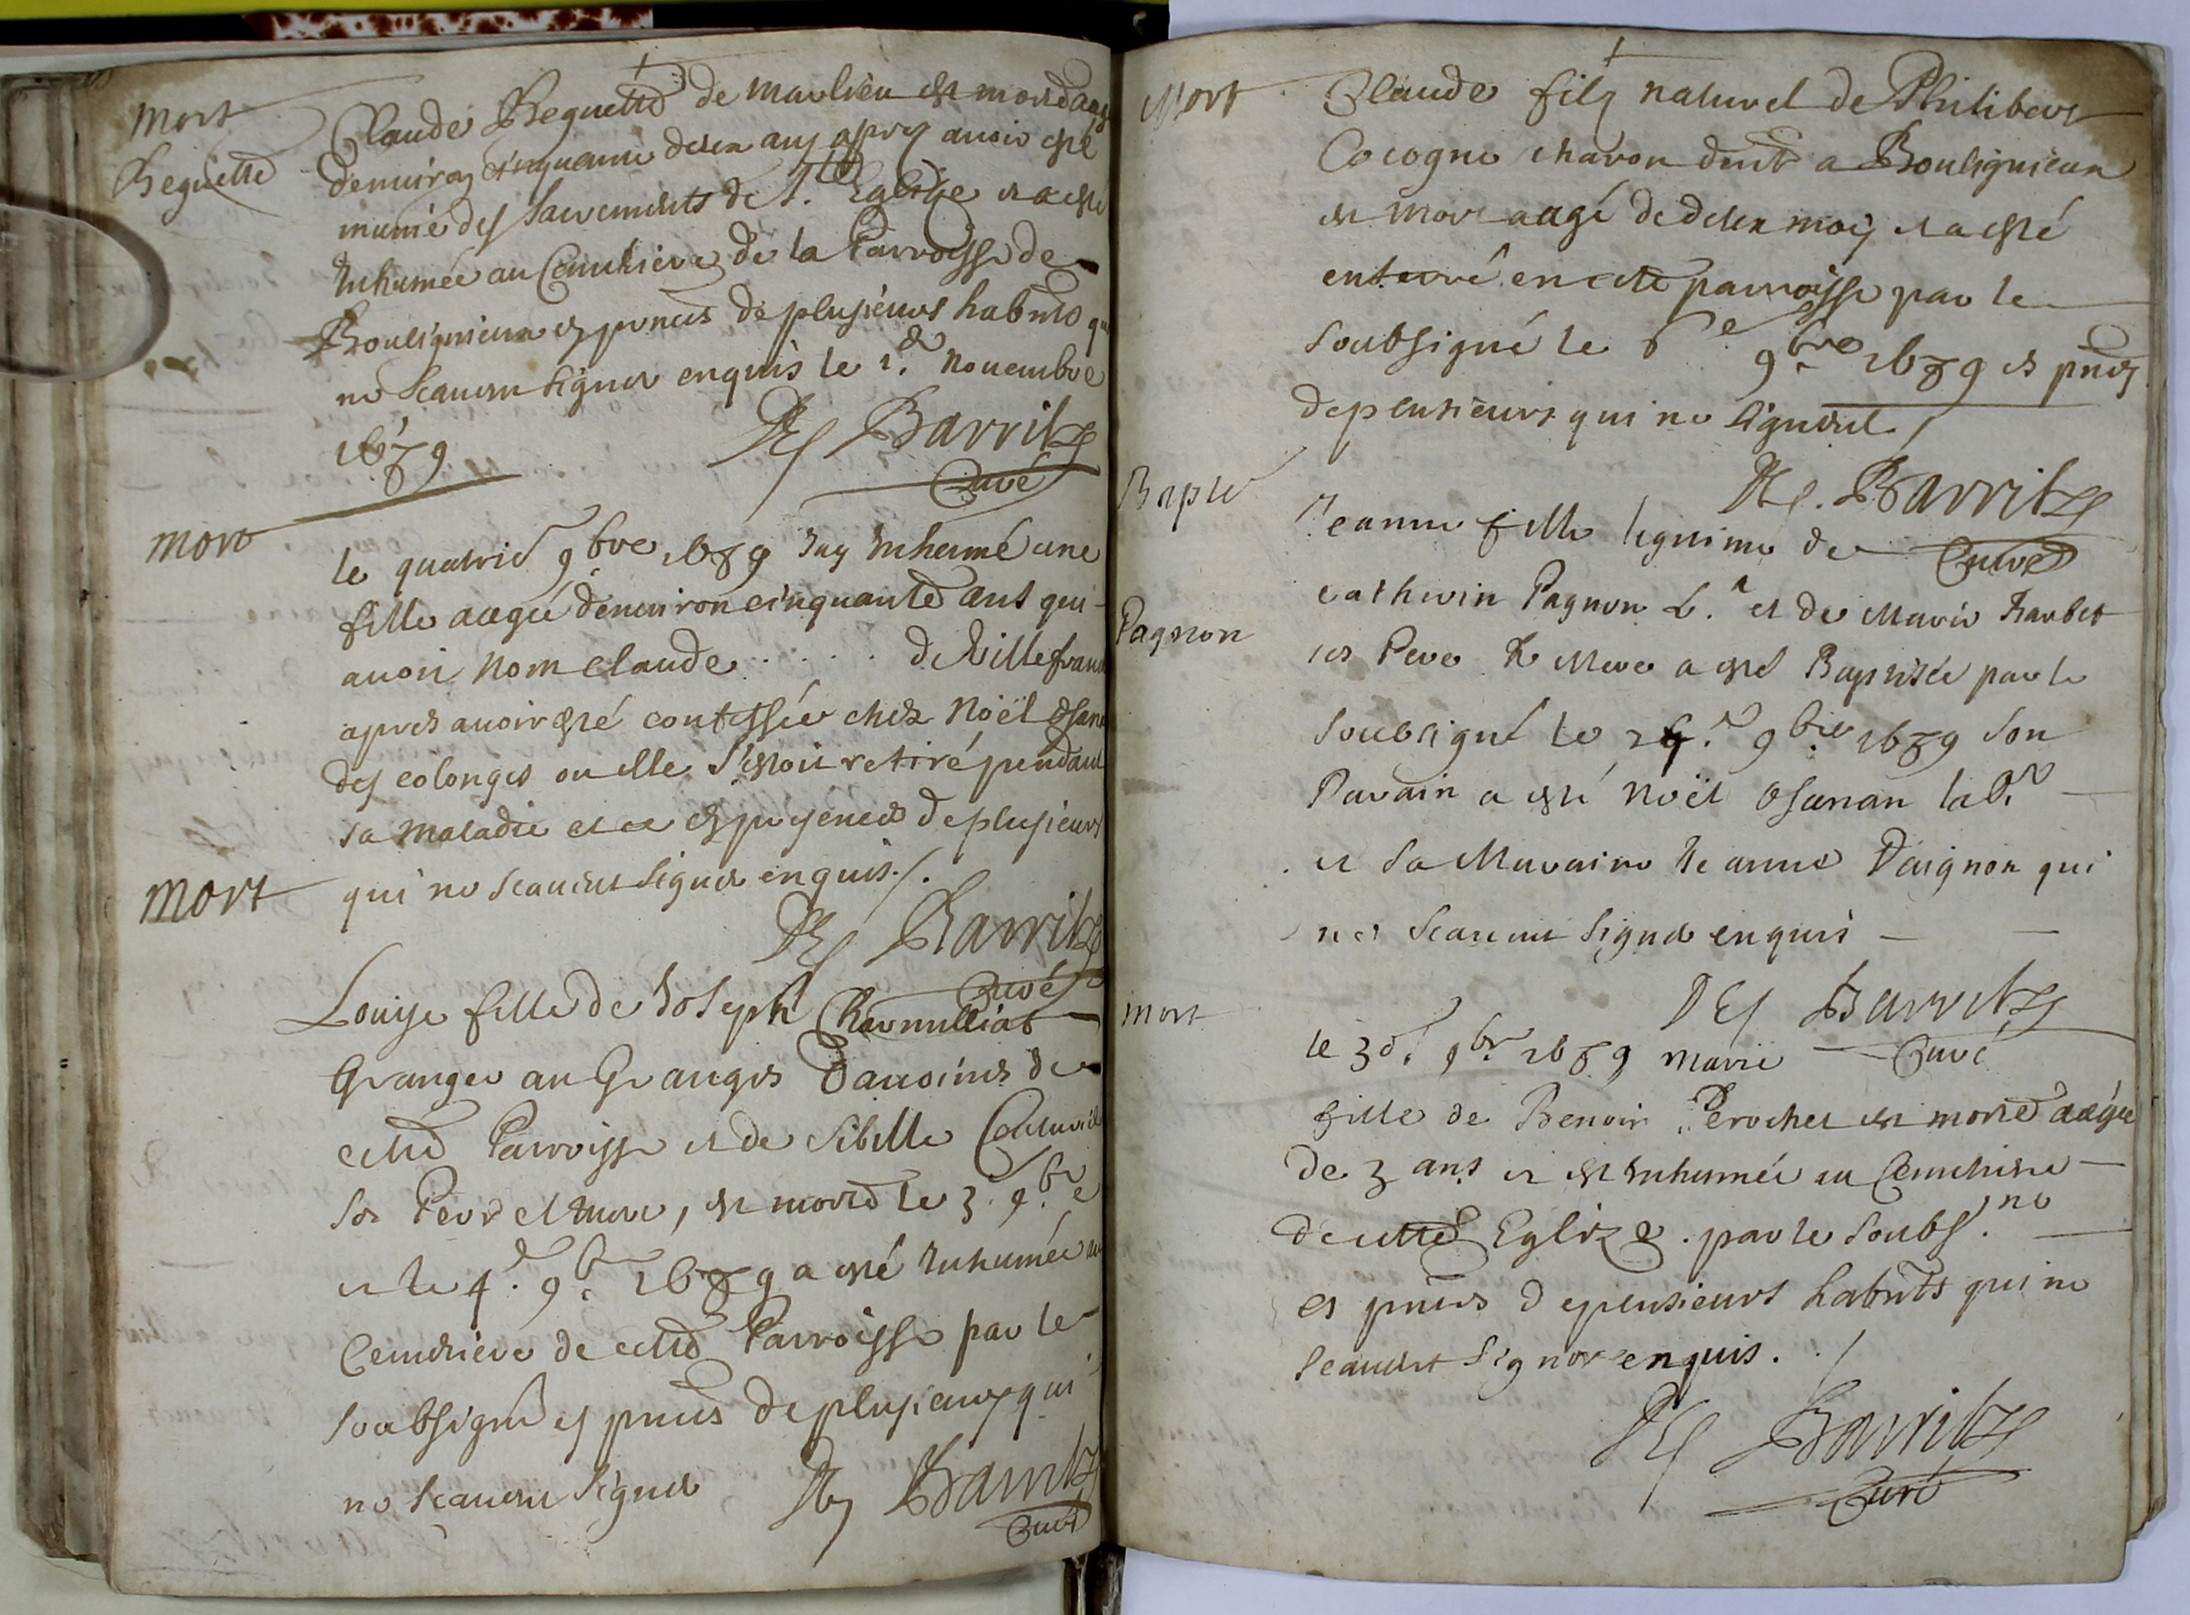 Mort
Beguette
Claude Beguette de Marlieu est morte aagé
denuiron cinquante deux ans apres auoir esté
munie des Sacrements de Ste Eglise et a esté
Inhumée au Cemetiere de la Parroisse de
Boulignieux es pnces de plusieurs habnts qui
ne scauent signer enquis le 2.e Nouembre
1689
DEs Barritz
Curé
mort
le quatrie 9bre 1689 Jay Inhumé une
fille aagée denuiron cinquante ans qui
auoit nom Claude . . . . . de Villefran
apres auoir esté confessée chez Noël Osanan
des colonges ou elle s'estoit retiré pendant
sa maladie et ce es presences de plusieurs
qui ne scauent signer enquis ./.
DEs Barritz
Curé
Mort
Louise fille de Joseph Charnulliat
Granger au Granges de
cette Parroisse et de Sibille
ses Pere et mere, est morte le 3. 9bre
et le 4.e 9b. 1689 a esté Inhumée au
Cemetiere de cette Parroisse par le
soubsigné es pnces de plusieurs qui
ne scauent signer
DEs Barritz
Curé
Mort
Claude fils naturel de Philibert
Cocogne charon dent a Boulignieux
est mort aagé de deux mois et a esté
enterré en cette parroisse par le
soubsigné le 6e 9bre 1689 es pnces
de plusieurs qui ne signent /
DEs. Barritz
Curé
Bapte
Pagnon
Jeanne fille legitime de
cathrin Pagnon L.r et de Marie
ses Pere & Mere a esté Baptisée par le
soubsigné le 9bre 1689 son
Parain a esté Noël Osanan lab.r
et sa Maraine Jeanne Paignon qui
ne scauent signer enquis
DEs Barritz
Curé
mort
le 30.e 9br. 1689 Marie
fille de Benoit Perochet est morte aagée
de 3 ans et est Inhumée au Cemetiere
de cette Eglize . par le soubs.né
es pnces de plusieurs habnts qui ne
scauent signer enquis . /
DEs Barritz
Curé